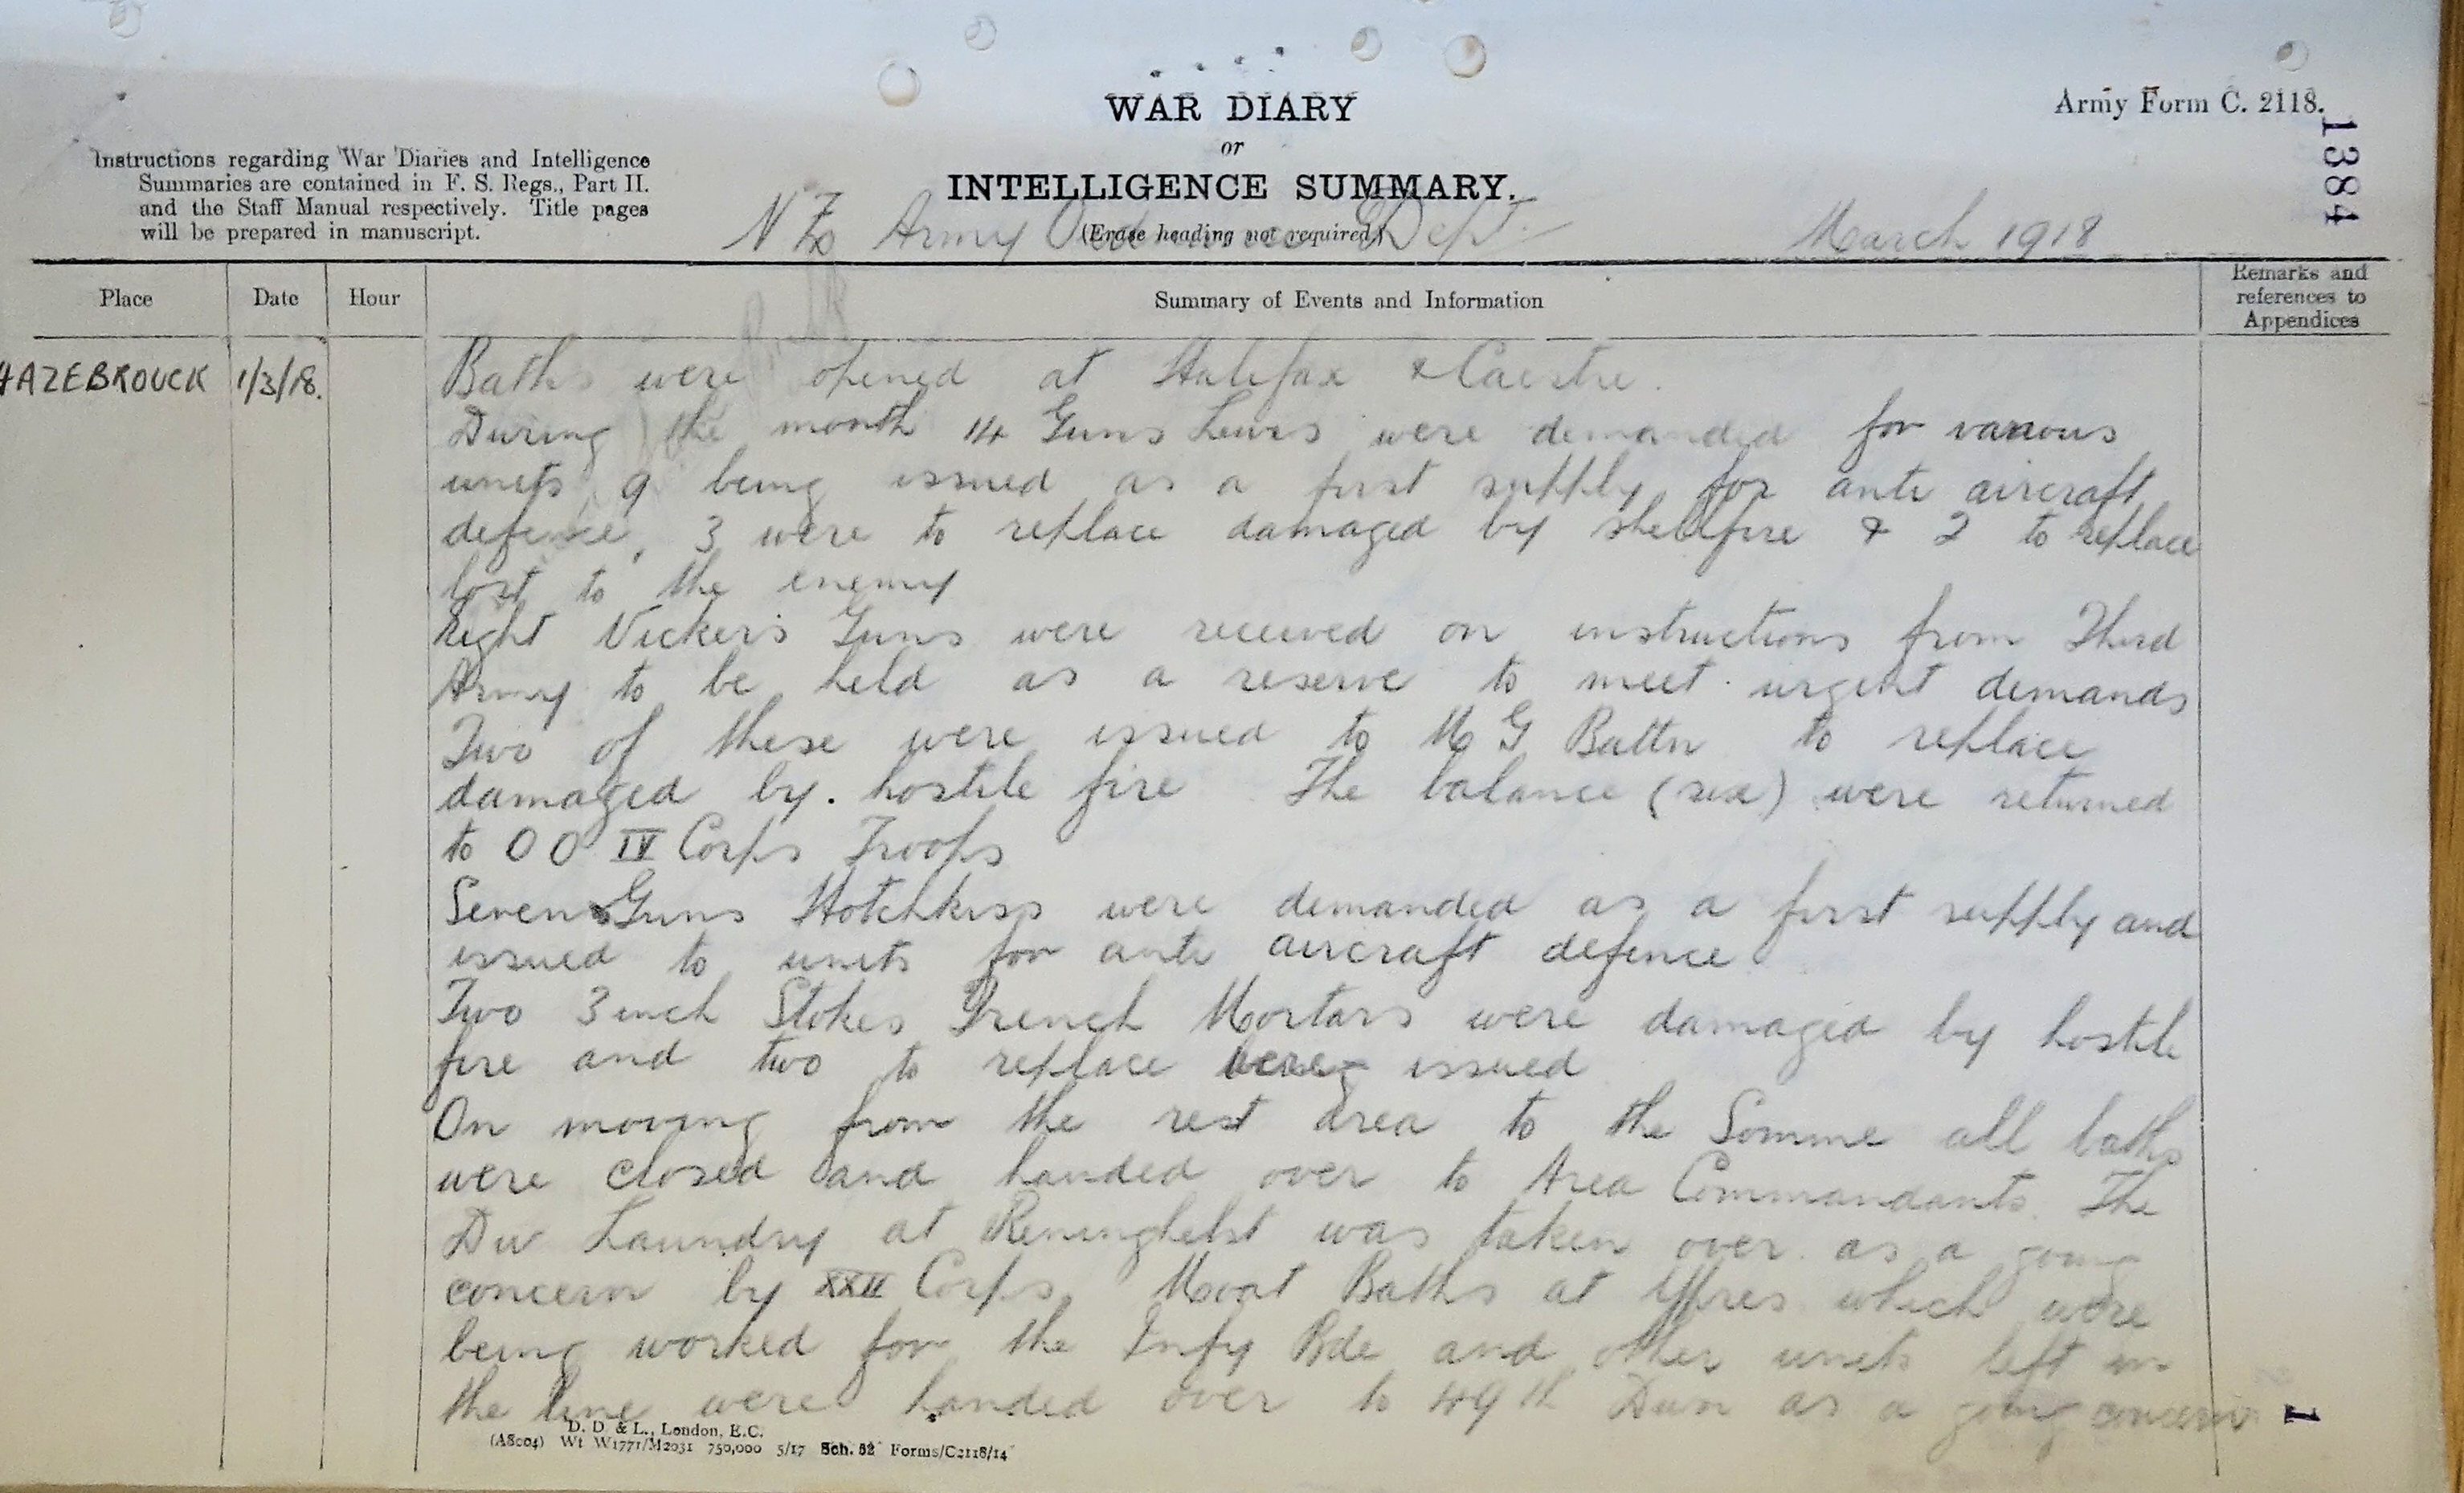 WAR DIARY
or
INTELLIGENCE SUMMARY.
(Erase heading not required.)
Army Form C. 2118.
1384
Instructions regarding War Diaries and Intelligence
Summaries are contained in F. S. Regs., Part II.
and the Staff Manual respectively. Title pages
will be prepared in manuscript.
NZ Army Ordnance Dept.
March 1918
Place
Date
Hour
Summary of Events and Information
Remarks and
references to
Appendices
HAZEBROUCK 1/3/18.
Baths were opened at Halifax & Caestre.
During the month 14 Guns Lewis were demanded for various
units 9 being issued as a first supply for anti aircraft
defence, 3 were to replace damaged by shellfire & 2 to replace
lost to the enemy
Eight Vickers Guns were received on instructions from Third
Army to be held as a reserve to meet urgent demands
Two of these were issued to M G Battn to replace
damaged by hostile fire The balance (six) were returned
to OO IV Corps Troops
Seven Guns Hotchkiss were demanded as a first supply and
issued to units for anti aircraft defence
Two 3 inch Stokes Trench Mortars were damaged by hostile
fire and two to replace were issued
On moving from the rest area to the Somme all baths
were closed and handed over to Area Commandants. The
Div Laundry at Reninghelst was taken over as a going
concern by XXII Corps. Moat Baths at Ypres which were
being worked for the Infy Bde and other units left in
the line were handed over to 49th Divn as a going concern
1
D. D. & L., London, E.C.
(A8004) Wt W1771/M2031 750,000 5/17 Sch. 52 Forms/C2118/14